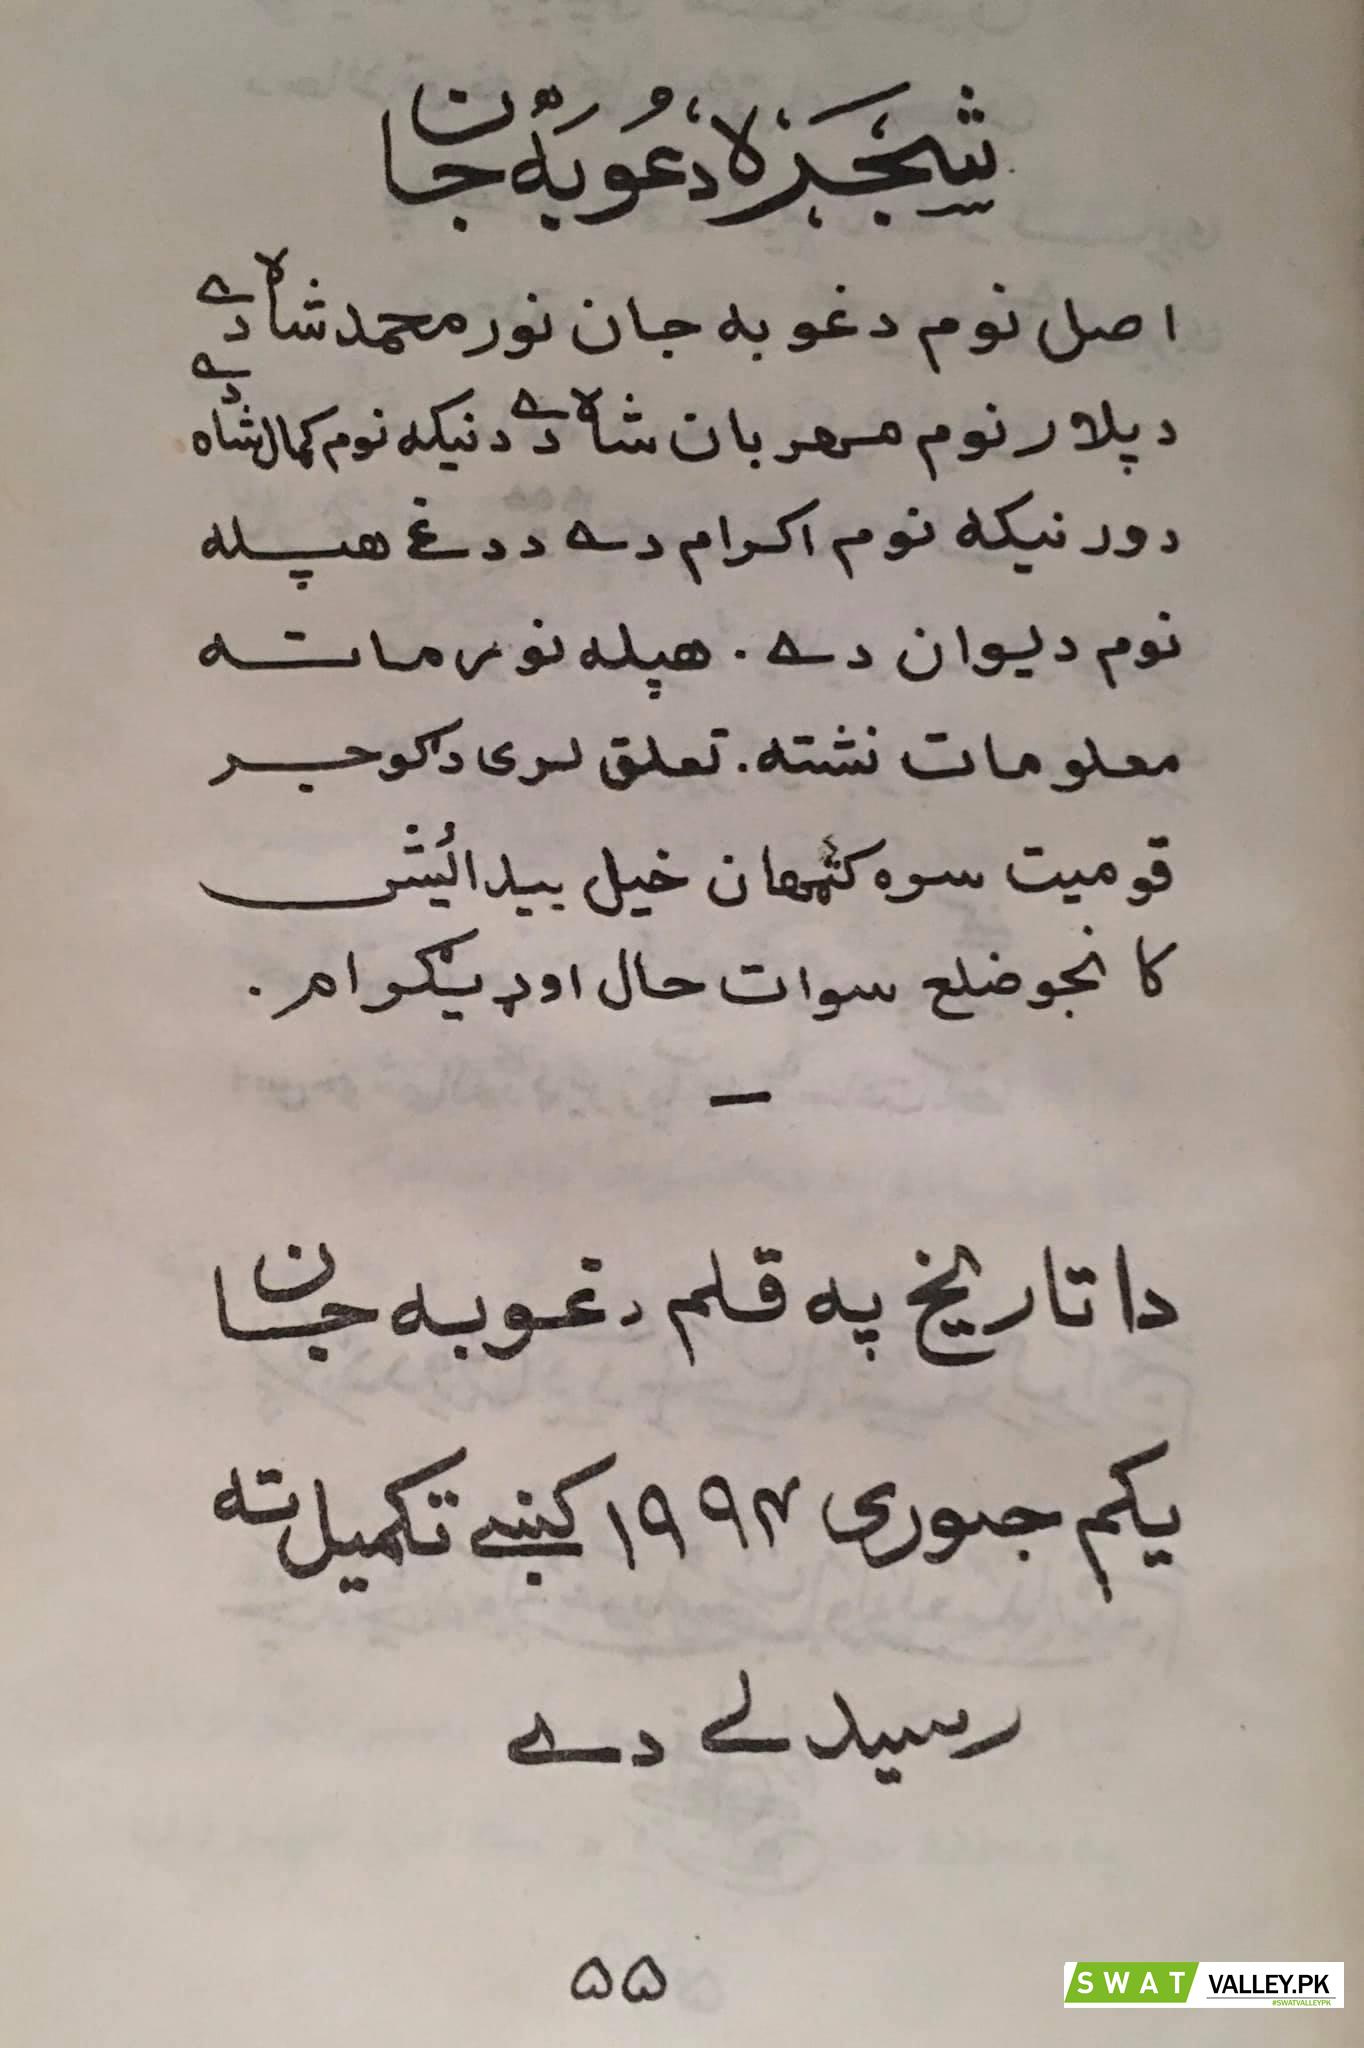 شجره د غوبه جان
اصل نوم د غوبه جان نور محمد شاه دے
د پلار نوم مهربان شاه دے د نیکه نوم کمال شاه دے
د ور نیکه نوم اکرام دے د دغے هپله
نوم دیوان دے . هپله نور ماته
معلومات نشته . تعلق لری د ګوجر
قومیت سره کټهان خیل پیدائیش
کانجو ضلع سوات حال اوډیګرام .
–
دا تاریخ په قلم د غوبه جان
یکم جنوری ۱۹۹۴ کښے تکمیل ته
رسیدلے دے
۵۵
SWAT VALLEY.PK
#SWATVALLEYPK